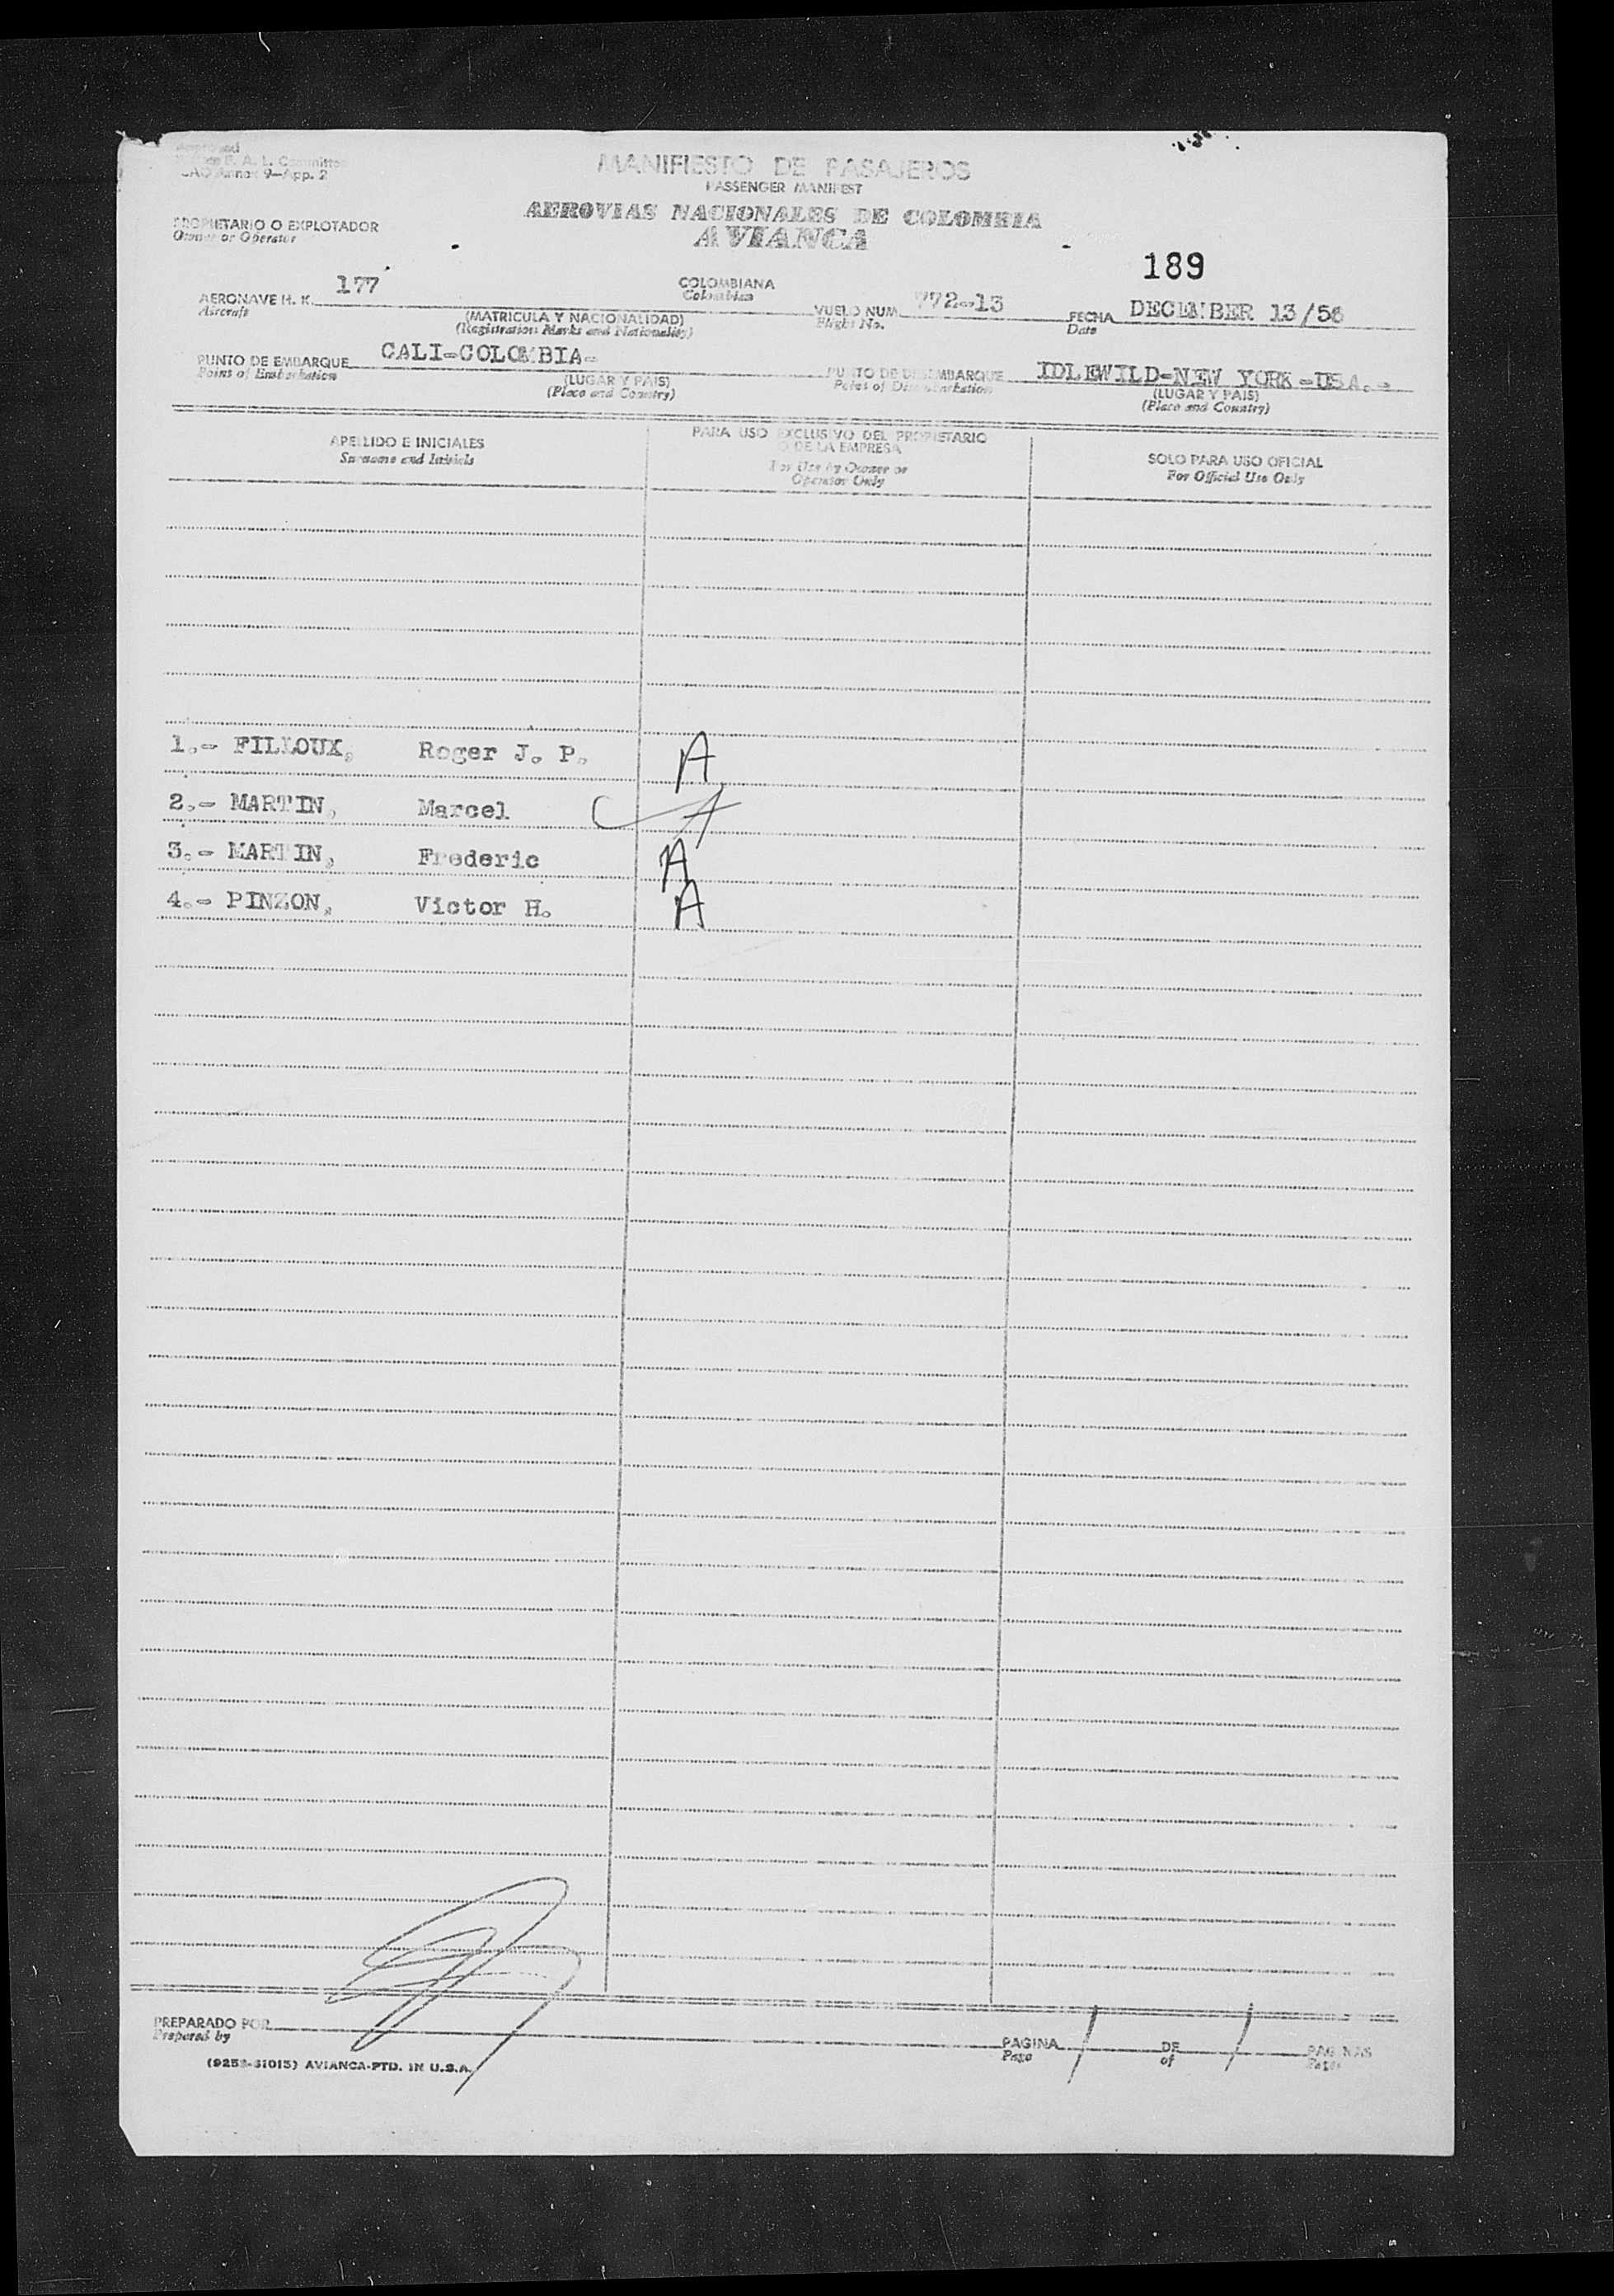 Approved
E. A. L. Committee
Annex 9—App. 2
MANIFIESTO DE PASAJEROS
PASSENGER MANIFEST
AEROVIAS NACIONALES DE COLOMBIA
AVIANCA
PROPIETARIO O EXPLOTADOR
Owner or Operator
189
AERONAVE H. K. 177 COLOMBIANA VUELO NUM 772-13 FECHA DECEMBER 13/56
Aircraft (MATRICULA Y NACIONALIDAD) Colombian Flight No. Date
(Registration Marks and Nationality)
PUNTO DE EMBARQUE CALI-COLOMBIA- PUNTO DE DESEMBARQUE IDLEWILD-NEW YORK-USA.-
Point of Embarkation (LUGAR Y PAIS) Point of Disembarkation (LUGAR Y PAIS)
(Place and Country) (Place and Country)
APELLIDO E INICIALES PARA USO EXCLUSIVO DEL PROPIETARIO SOLO PARA USO OFICIAL
Surname and Initials O DE LA EMPRESA For Official Use Only
For Use by Owner or
Operator Only
1.- FILLOUX, Roger J. P. A
2.- MARTIN, Marcel A
3.- MARTIN, Frederic A
4.- PINZON, Victor H. A
PREPARADO POR PAGINA 1 DE 1 PAGINAS
Prepared by Page of Pages
AVIANCA-PTD. IN U.S.A.